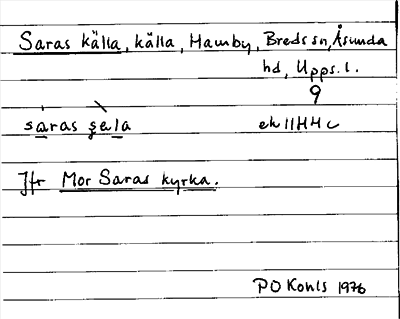 Saras källa, källa, Hamby, Breds sn, Åsunda
hd, Upps. l.
9
saras şęla ek 11HH c
Jfr Mor Saras kyrka.
PO Konls 1976